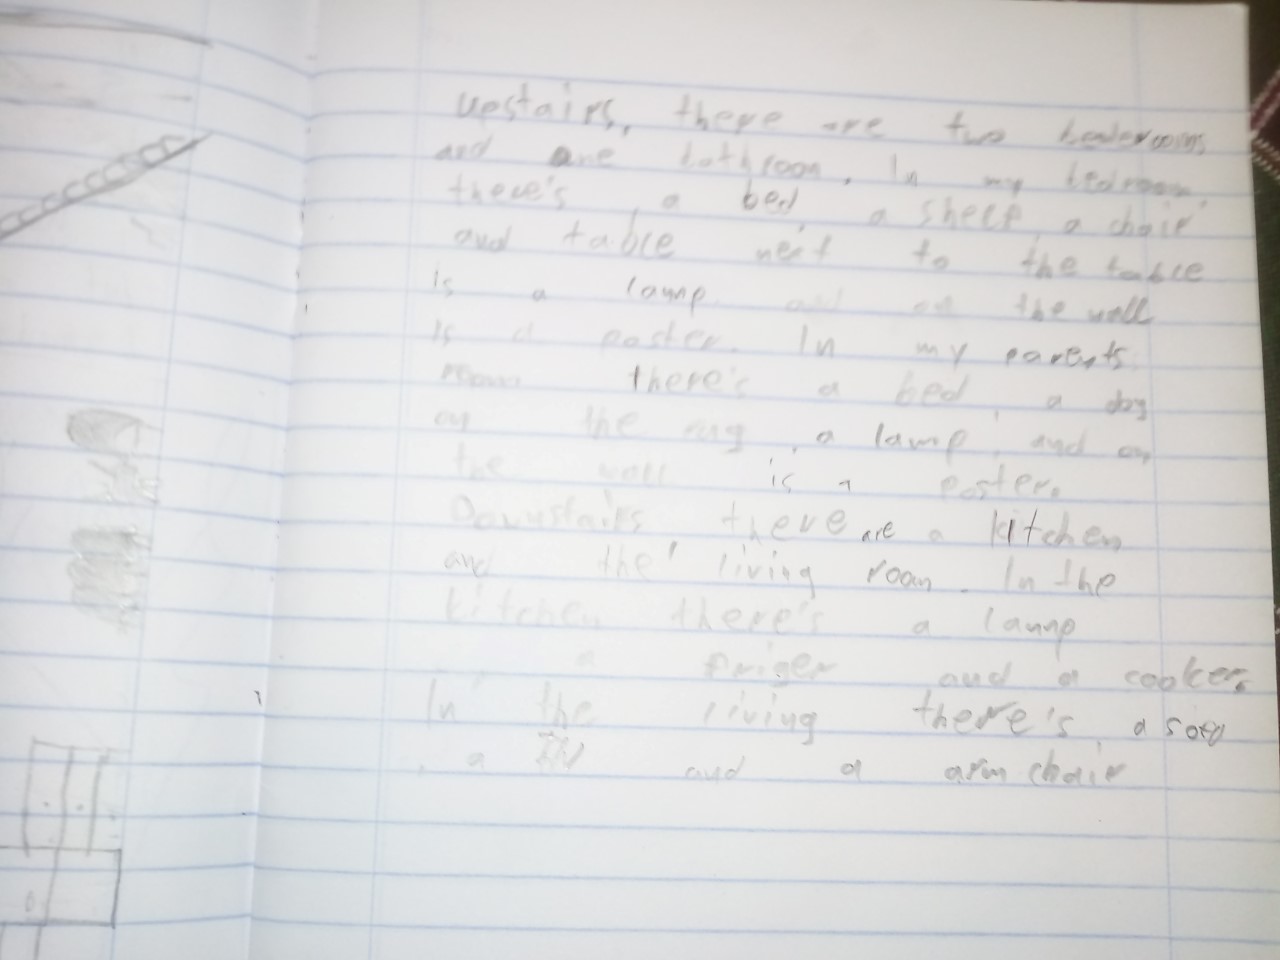 upstairs, there are two bedrooms
and one bathroom. In my bedroom
there's a bed, a shelf, a chair
and table next to the table
is a lamp and on the wall
is a poster. In my parents
room there's a bed, a dog
on the rug, a lamp, and on
the wall is a poster.
Downstairs there are a kitchen
and the living room. In the
kitchen there's a lamp
a and a cooker.
In the living there's, a
a TV and a arm chair